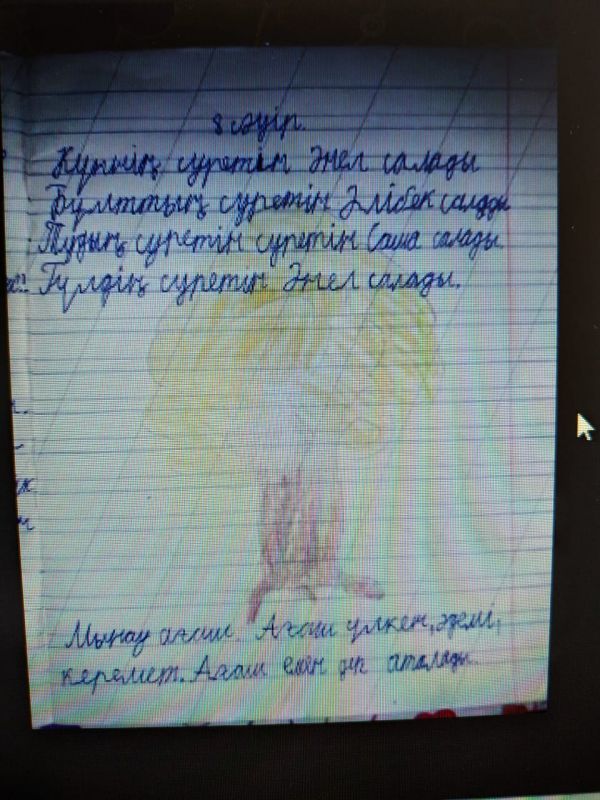 8 сәуір.
Күннің суретін Әнел салады
Бұлттың суретін Әлібек салады
Тудың суретін суретін Саша салады
Гүлдің суретін Әнел салады.
Мынау ағаш. Ағаш үлкен, әдемі,
керемет. Ағаш емен деп аталады.